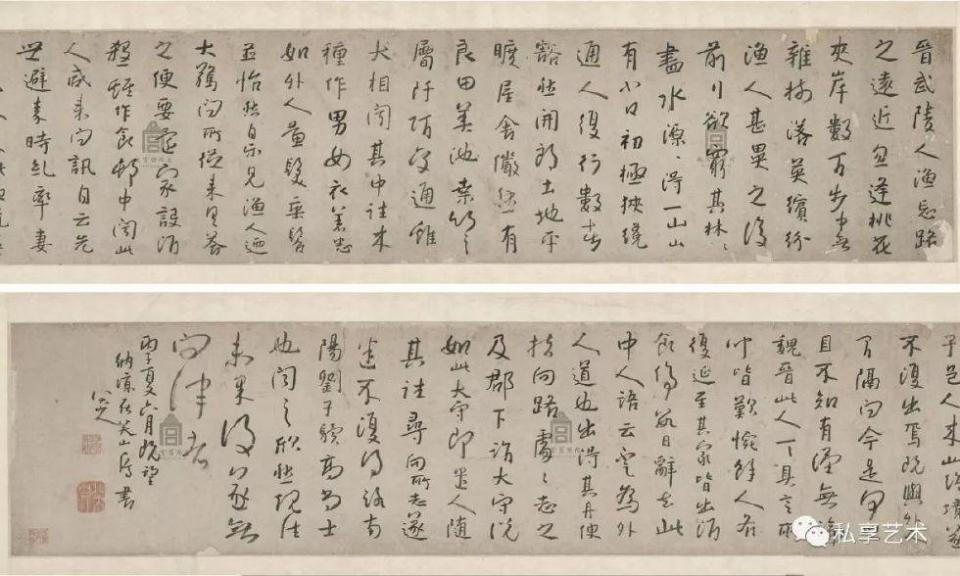 晉武陵人漁忘路
之遠近忽逢桃花
夾岸數百步中無
雜樹落英繽紛
漁人甚異之復
前行欲窮其林、
盡水源、得一山山
有小口初極狹纔
通人復行數十步
豁然開朗土地平
曠屋舍儼然有
良田美池桑竹之
屬阡陌交通雞
犬相聞其中往來
種作男女衣著悉
如外人黃髮垂髫
並怡然自樂見漁人迺
大驚問所從來具答
之便要還家設酒
殺雞作食邨中聞此
人咸來問訊自云先
世避秦時亂率妻
子邑人來此絕境遂
不復出焉既與外
間隔問今是何
且不知有漢無論
魏晉此人一一具言所
聞皆歎惋餘人各
復延至其家皆出酒
食停數日辭去此
中人語云足為外
人道也出得其舟便
扶向路處、志之
及郡下詣太守說
如此太守即遣人隨
其往尋向所志遂
迷不復得路南
陽劉子驥高尚士
也聞之欣然規往
未果後遂無
問津者
丙子夏六月既望
納涼在芙山房書
八大山人
私享艺术